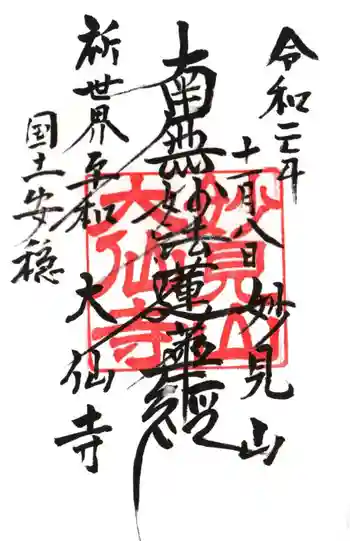 令和二年
十一月八日
妙見山
南無妙法蓮華経
祈世界平和
国土安穏
大仙寺
妙見山
大仙寺